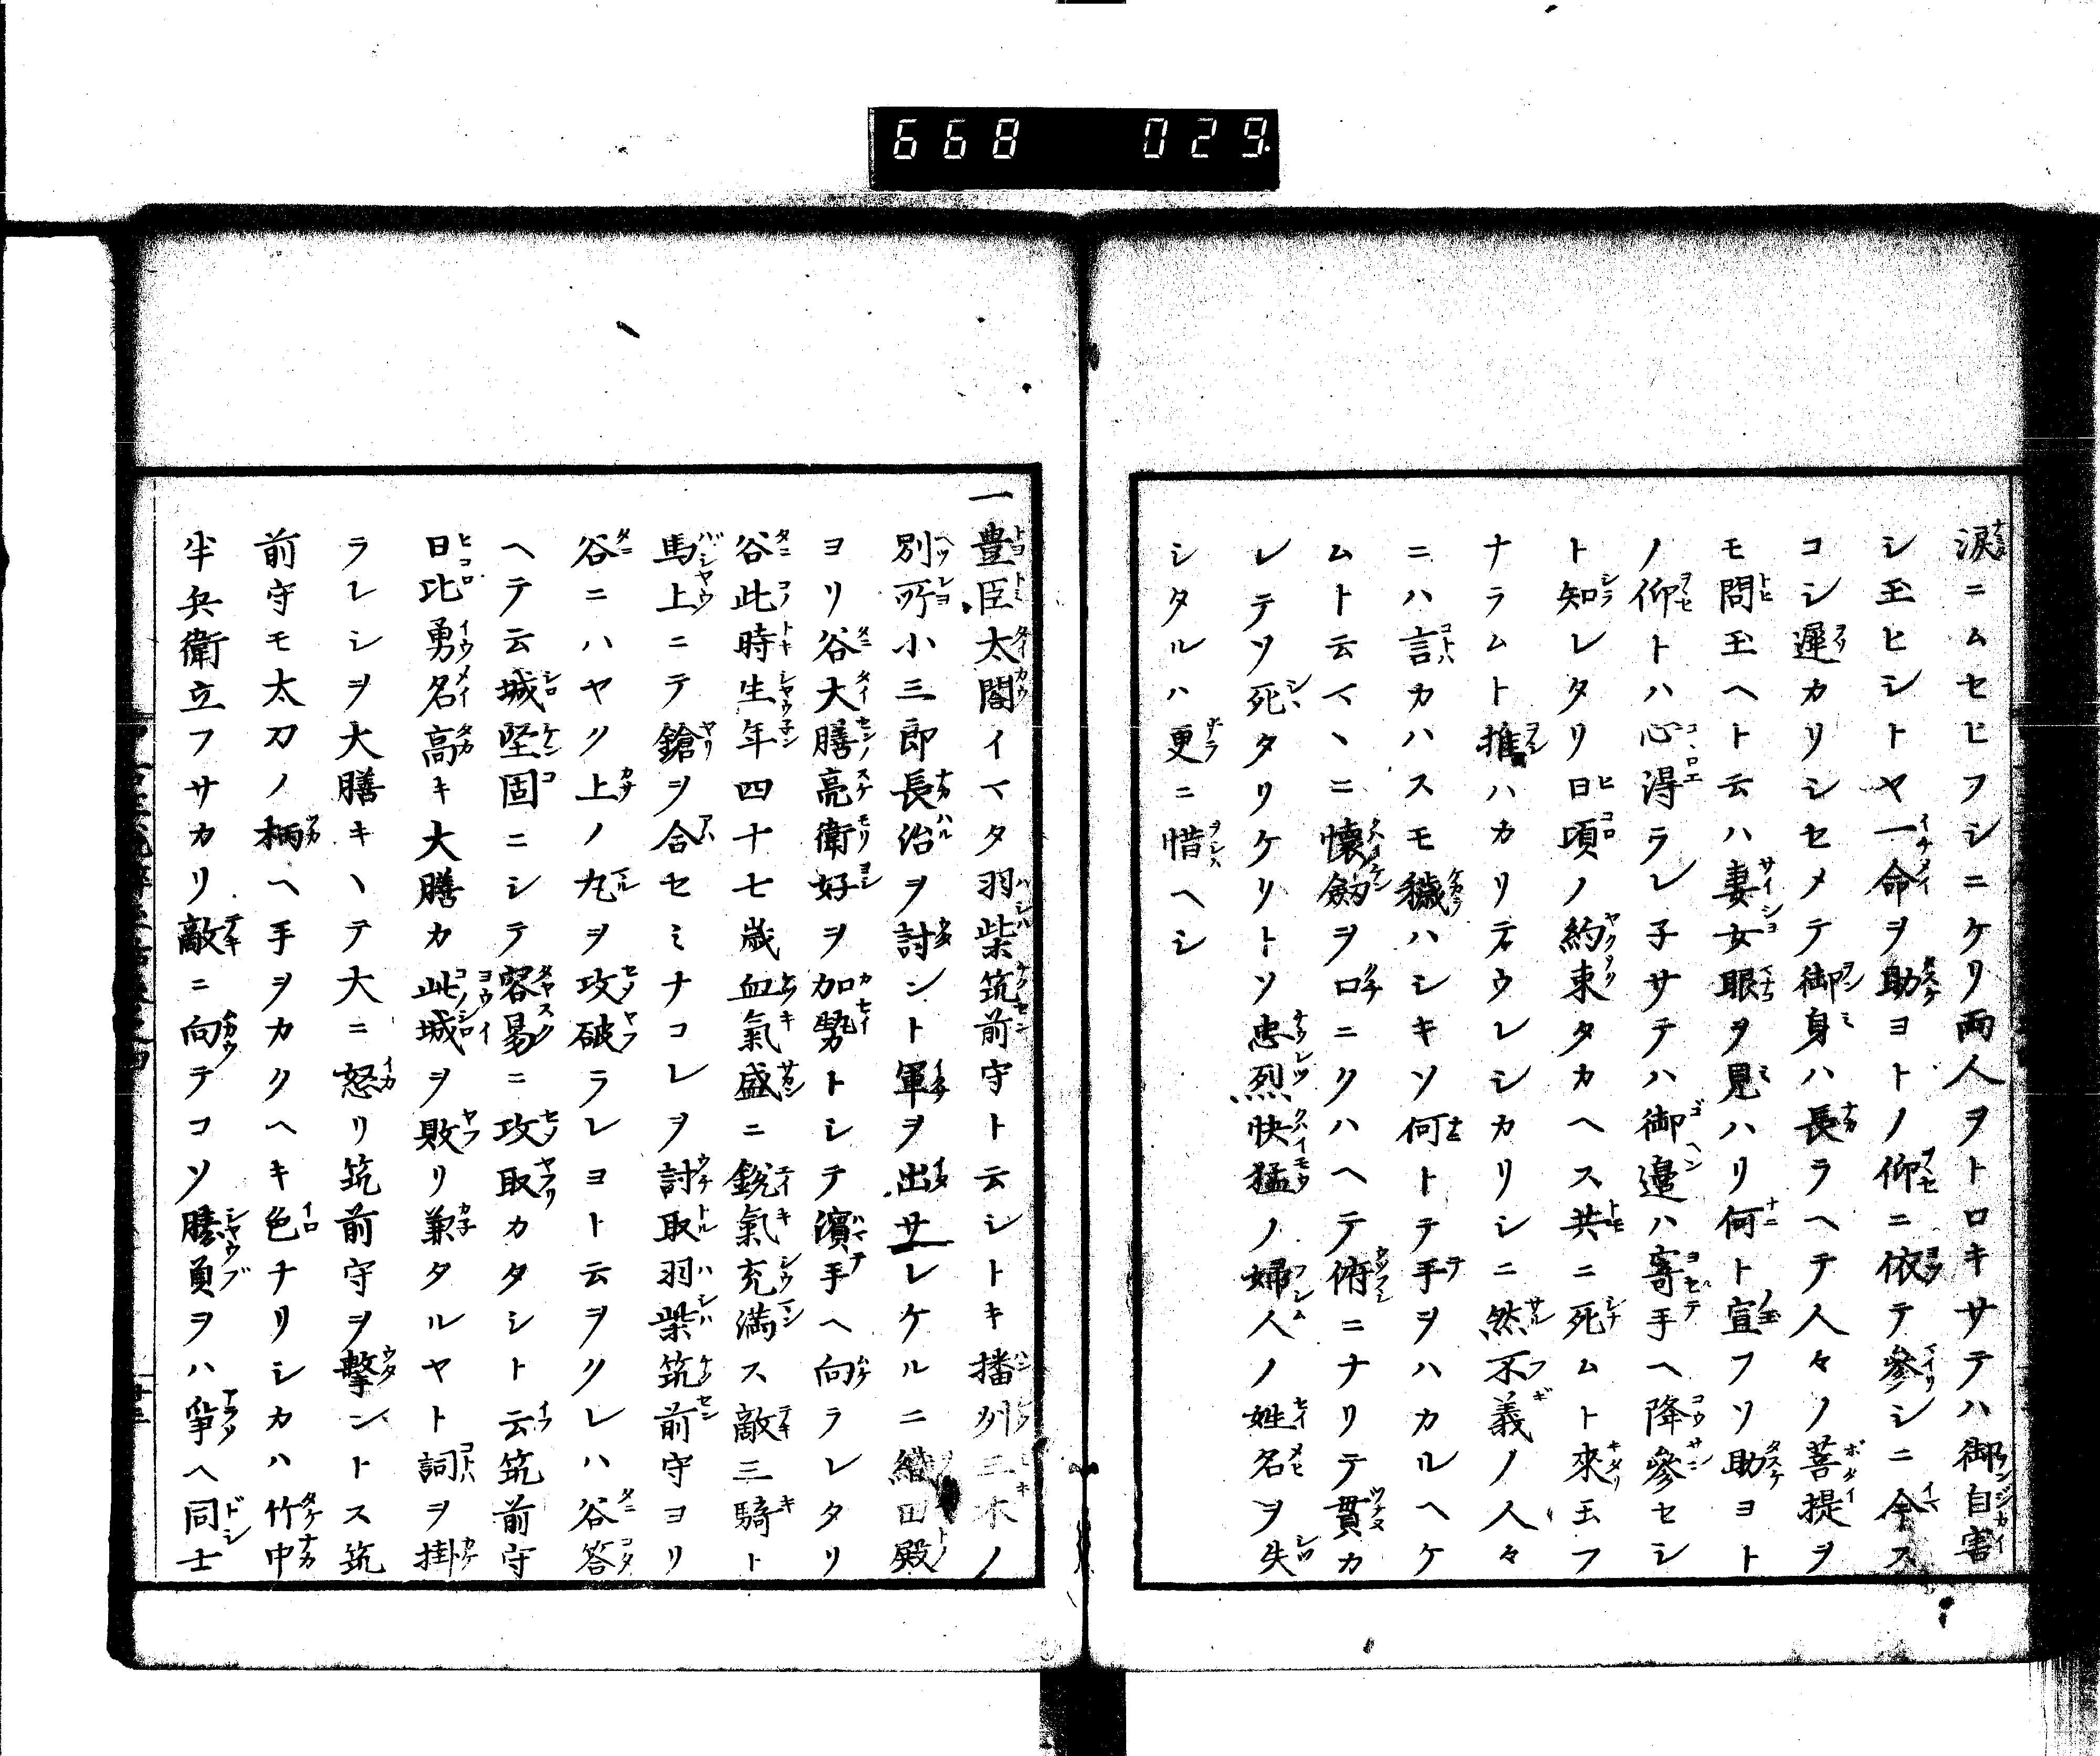 668 029
涙ニムセヒフシニケリ両人ヲトロキサテハ御自害
シ玉ヒシトヤ一命ヲ助ヨトノ仰ニ依テ參シニ今ス
コシ遲カリシセメテ御身ハ長ラヘテ人々ノ菩提ヲ
モ問玉ヘト云ハ妻女眼ヲ見ハリ何ト宣フソ助ヨト
ノ仰トハ心得ラレ子サテハ御邉ハ寄手ヘ降參セシ
ト知レタリ日頃ノ約束タカヘス共ニ死ムト來玉フ
ナラムト推ハカリテウレシカリシニ然不義ノ人々
ニハ言カハスモ穢ハシキソ何トテ手ヲハカルヘケ
ムト云マヽニ懐劔ヲ口ニクハヘテ俯ニナリテ貫カ
レテソ死タリケリトソ忠烈快猛ノ婦人ノ姓名ヲ失
シタルハ更ニ惜ヘシ
一豊臣太閤イマタ羽柴筑前守ト云シトキ播州三木ノ
別所小三郎長治ヲ討ント軍ヲ出サレケルニ織田殿
ヨリ谷大膳亮衛好ヲ加勢トシテ濱手ヘ向ラレタリ
谷此時生年四十七歳血氣盛ニ鋭氣充満ス敵三騎ト
馬上ニテ鎗ヲ合セミナコレヲ討取羽柴筑前守ヨリ
谷ニハヤク上ノ丸ヲ攻破ラレヨト云ヲクレハ谷答
ヘテ云城堅固ニシテ容易ニ攻取カタシト云筑前守
日比勇名高キ大膳カ此城ヲ敗リ兼タルヤト詞ヲ掛
ラレシヲ大膳キヽテ大ニ怒リ筑前守ヲ撃ントス筑
前守モ太刀ノ柄ヘ手ヲカクヘキ色ナリシカハ竹中
半兵衛立フサカリ敵ニ向テコソ勝負ヲハ爭ヘ同士